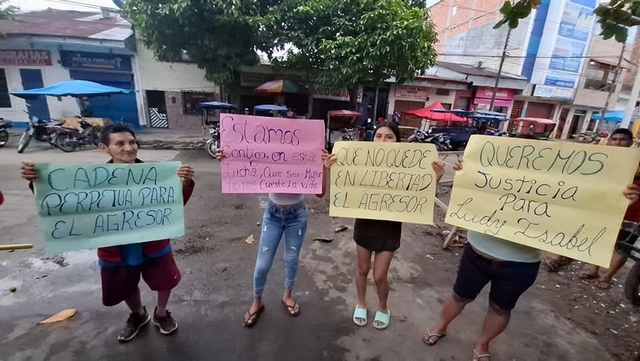 CADENA
PERPETUA PARA
EL AGRESOR
Estamos
Contigo en esta
Lucha, Que Ser Mujer
no me Cueste la vida
QUE NO QUEDE
EN LIBERTAD
EL AGRESOR
QUEREMOS
Justicia
Para
Ludy Isabel